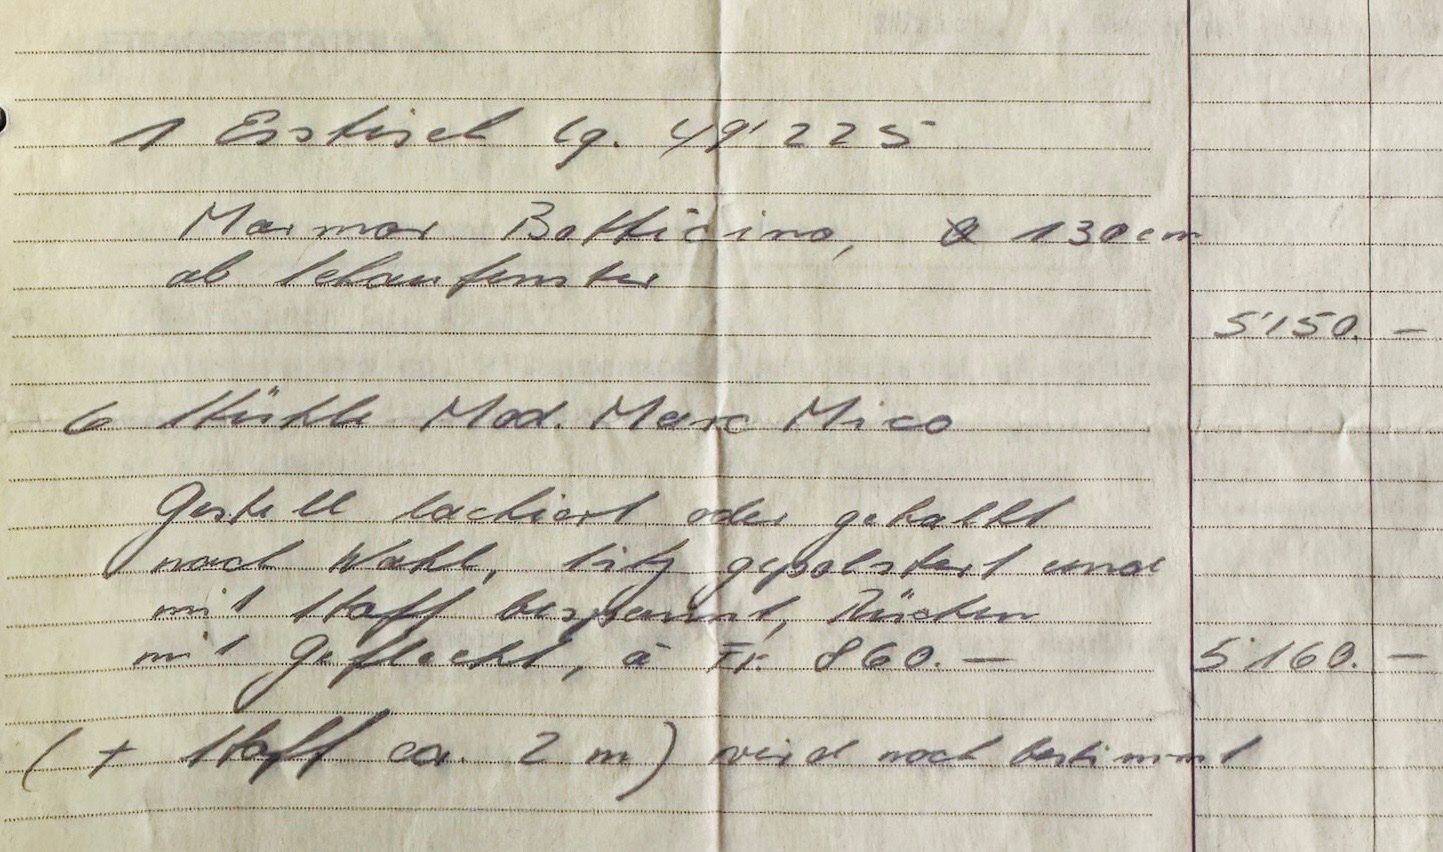 1 Esstisch Lg. 49'225
Marmor Botticino, ø 130 cm
ab Schaufenster
5'150. —
6 Stühle Mod. Marc Mico
Gestell lackiert oder gekalkt
nach Wahl, Sitz gepolstert und
mit Stoff bespannt, Rücken
mit Geflecht, à Fr. 860. — 5'160. —
(+ Stoff ca. 2 m) wird noch bestimmt